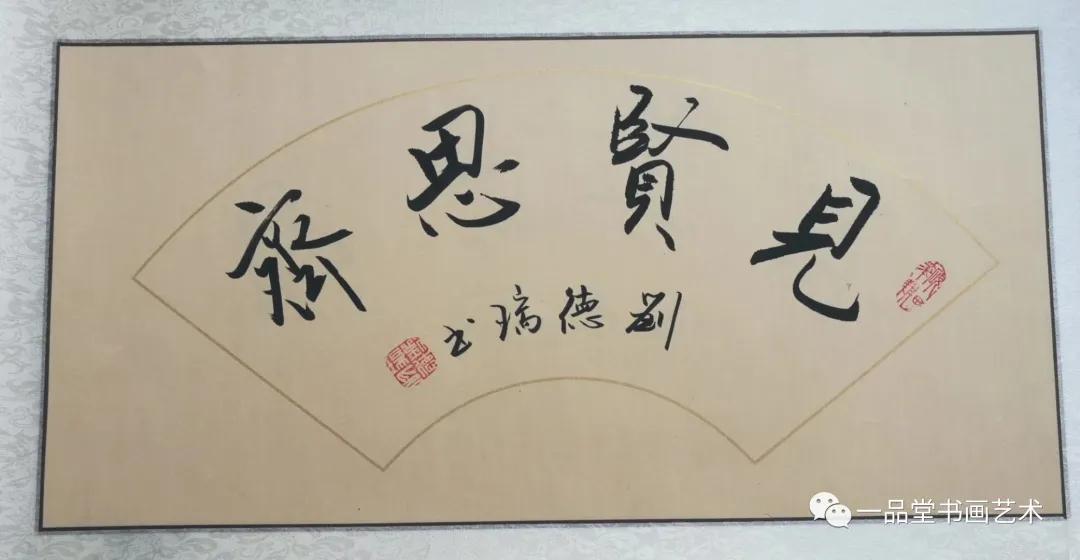 見賢思齊
劉德瑞书
一品堂书画艺术